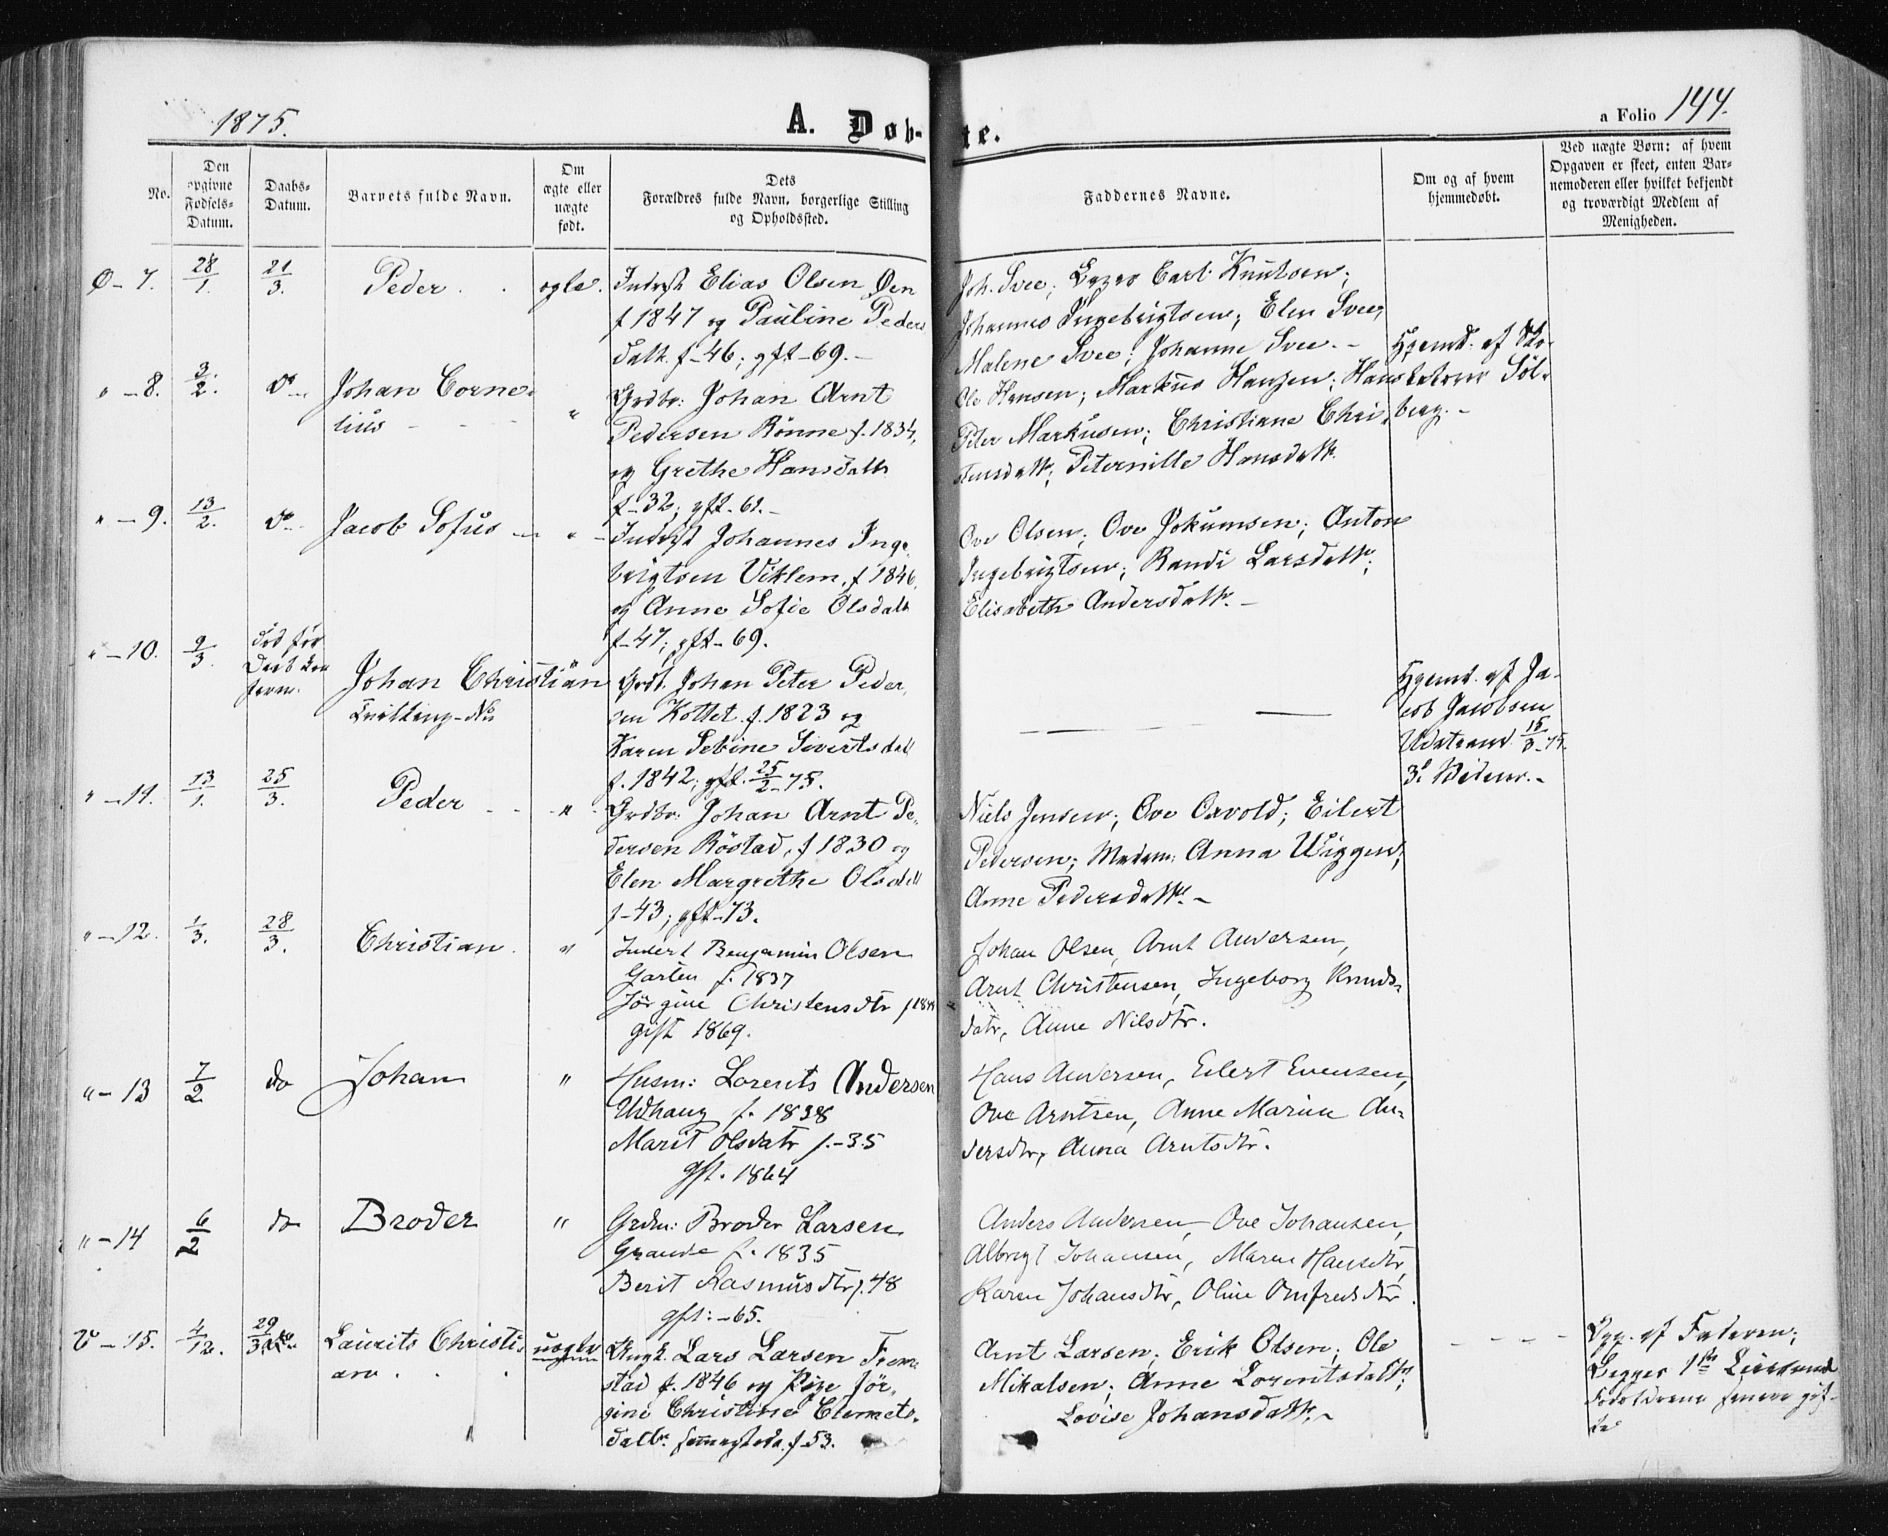 1875.
A. Døb-
te.
a Folio 144.
No.
Den
opgivne
Fødsels-
Datum.
Daabs-
Datum.
Barnets fulde Navn.
Om
ægte eller
uægte
født.
Dets
Forældres fulde Navn, borgerlige Stilling
og Opholdssted.
Faddernes Navne.
Om og af hvem
hjemmedøbt.
Ved uægte Børn: af hvem
Opgaven er skeet, enten Bar-
nemoderen eller hvilket bekjendt
og troværdigt Medlem af
Menigheden.
Ø - 7. 28/1. 21/3. Peder egte. Inderst Elias Olsen Øen
f 1847 og Pauline Peders
datt. f - 46; gft - 69. -
Joh. Svee; Carl Knutsen;
Johannes Ingebrigtsen; Elen Svee;
Malene Svee; Johanne Svee. -
" - 8. 3/2. do - Johan Corne-
lius - - - "
Grdbr: Johan Arnt
Pedersen Rønne f. 1834,
og Grethe Hansdatt.
f - 32; gft - 61. -
Ole Hansen; Markus Hansen; Hans
Peter Markusen; Christiane Chri-
stensdatt; Peternille Hansdatt.
Hjemd. af Sko-
Søl-
berg. -
" - 9. 13/2. do - Jacob Sofus - " -
Inderst Johannes Inge-
brigtsen Viklem, f 1846,
og Anne Sofie Olsdatt
f - 47; gft - 69.
Ove Olsen; Ove Jokumsen; Anton
Ingebrigtsen; Randi Larsdatt;
Elisabeth Andersdatt. -
" - 10. 9/3. Død før
Johan Christian "
Tvilling -
Johan Peter Peder-
sen Kottet f. 1823 og
Karen Sebine Sivertsdatt
f. 1842; gft. 25/2 - 75.
Hjemd. af Ja-
cob Jacobsen
Udstrand 15/3 - 75.
" - 11. 13/1. 25/3. Peder - - - " -
Grdbr: Johan Arnt Pe-
dersen Røstad, f 1830 og
Elen Margrethe Olsdatt
f - 43; gft - 73.
Niels Jensen; Ove Oxvold; Eilert
Pedersen; Madam: Anna Wiggen;
Anne Pedersdatt. -
" - 12. 1/3. 28/3. Christian. "
Inderst Benjamin Olsen
Garten f. 1837
Jørgine Christensdtr f 1844
gift 1869.
Johan Olsen, Arnt Andersen,
Arnt Christensen, Ingeborg Knuds-
datr, Anne Nilsdtr.
" - 13 7/2 do Johan "
Husm: Lorents Andersen
Udhaug f. 1838
Marit Olsdatr f. - 35
gft. 1864
Hans Andersen, Eilert Evensen,
Ove Arntsen, Anne Marie An-
dersdtr, Anna Arntsdtr.
" - 14 6/2 do Broder "
Grdm: Broder Larsen
Grande f. 1835
Berit Rasmusdtr f. 48
gft: - 65.
Anders Andersen, Ove Johansen,
Albregt Johansen, Maren Hansdtr,
Karen Johansdtr, Oline Onfredsdtr.
V - 15. 4/12. 29/3 Laurits Christi-
an. . . uægte
Ungk. Lars Larsen Frem-
stad f. 1846 og Pige Jør-
gine Christine Clemets-
datt. f - 53.
Arnt Larsen; Erik Olsen; Ole
Mikalsen; Anne Lorentsdatt;
Lovise Johansdatt. -
- - - -
Opg. af Faderen;
Begges 1ste Leiermaal
Forældrene senere gif-
te